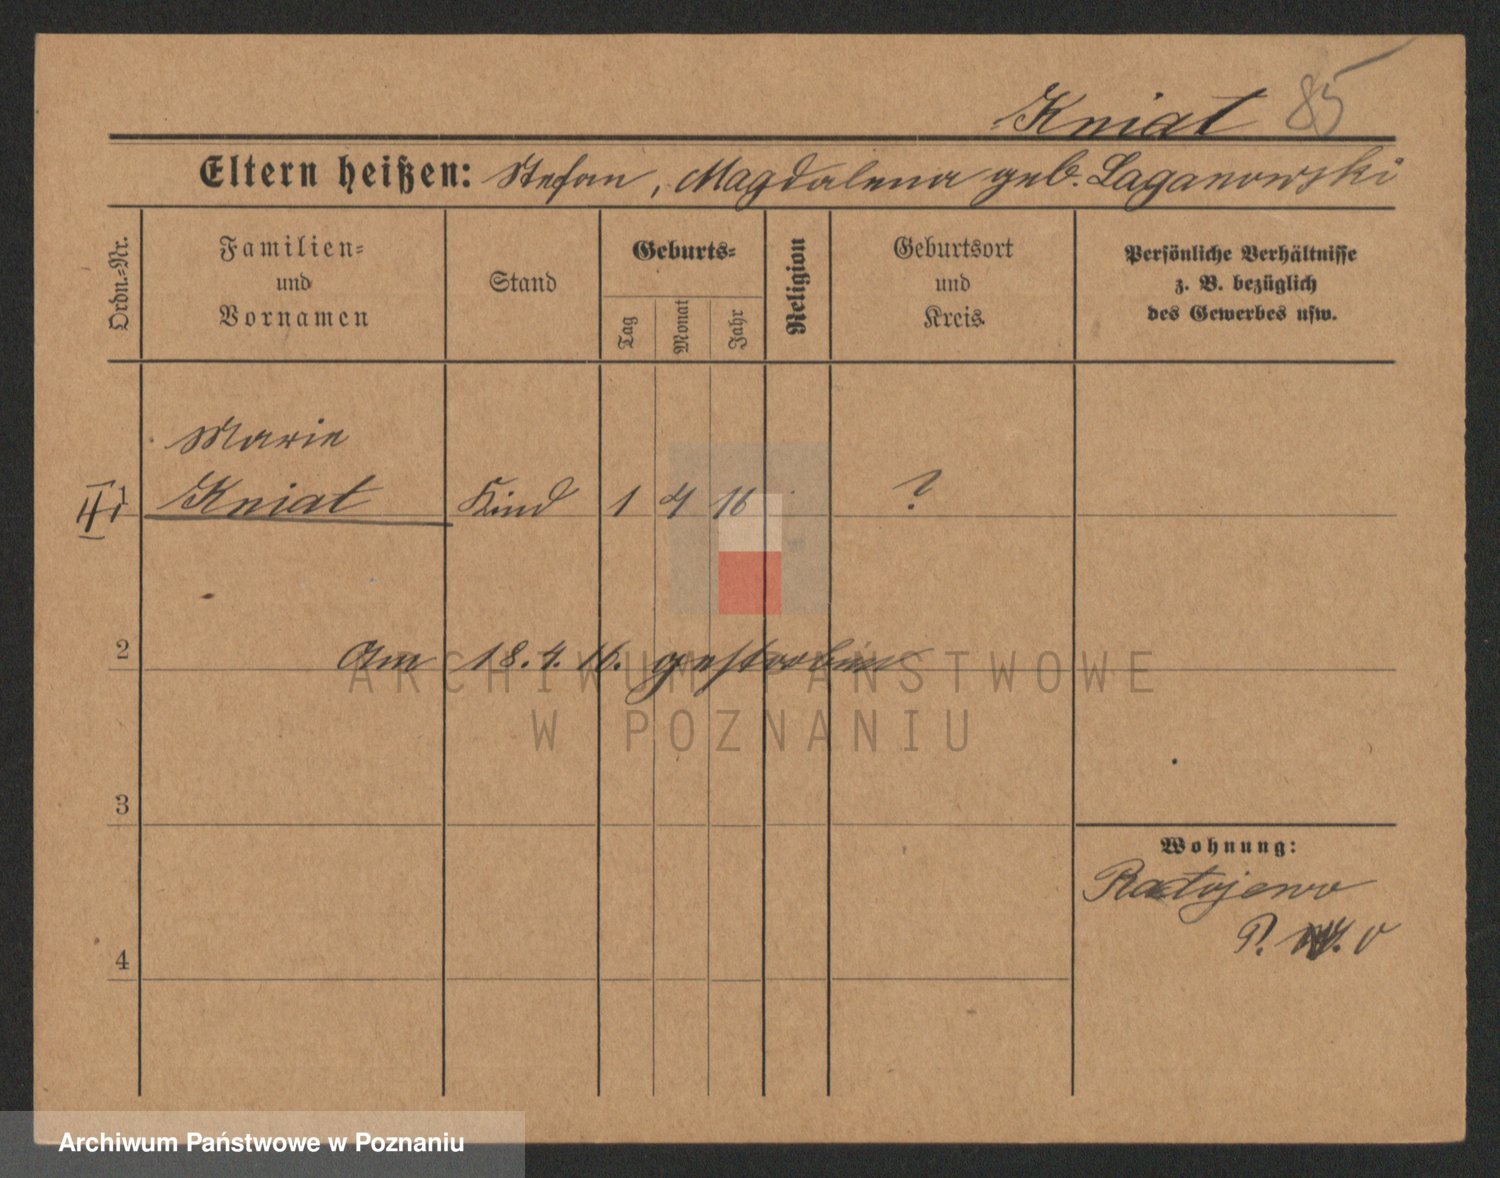 Kniat 85
Eltern heißen: Stefan, Magdalena geb. Laganowski
Ordn.-Nr.
Familien-
und
Vornamen
Stand
Geburts-
Tag
Monat
Jahr
Religion
Geburtsort
und
Kreis
Persönliche Verhältnisse
z. B. bezüglich
des Gewerbes usw.
Marie
1 Kniat Kind 1 4 16 ?
2 Am 18.4.16. gestorben
ARCHIWUM PAŃSTWOWE
W POZNANIU
3
Wohnung:
Radojewo
P.
4
Archiwum Państwowe w Poznaniu